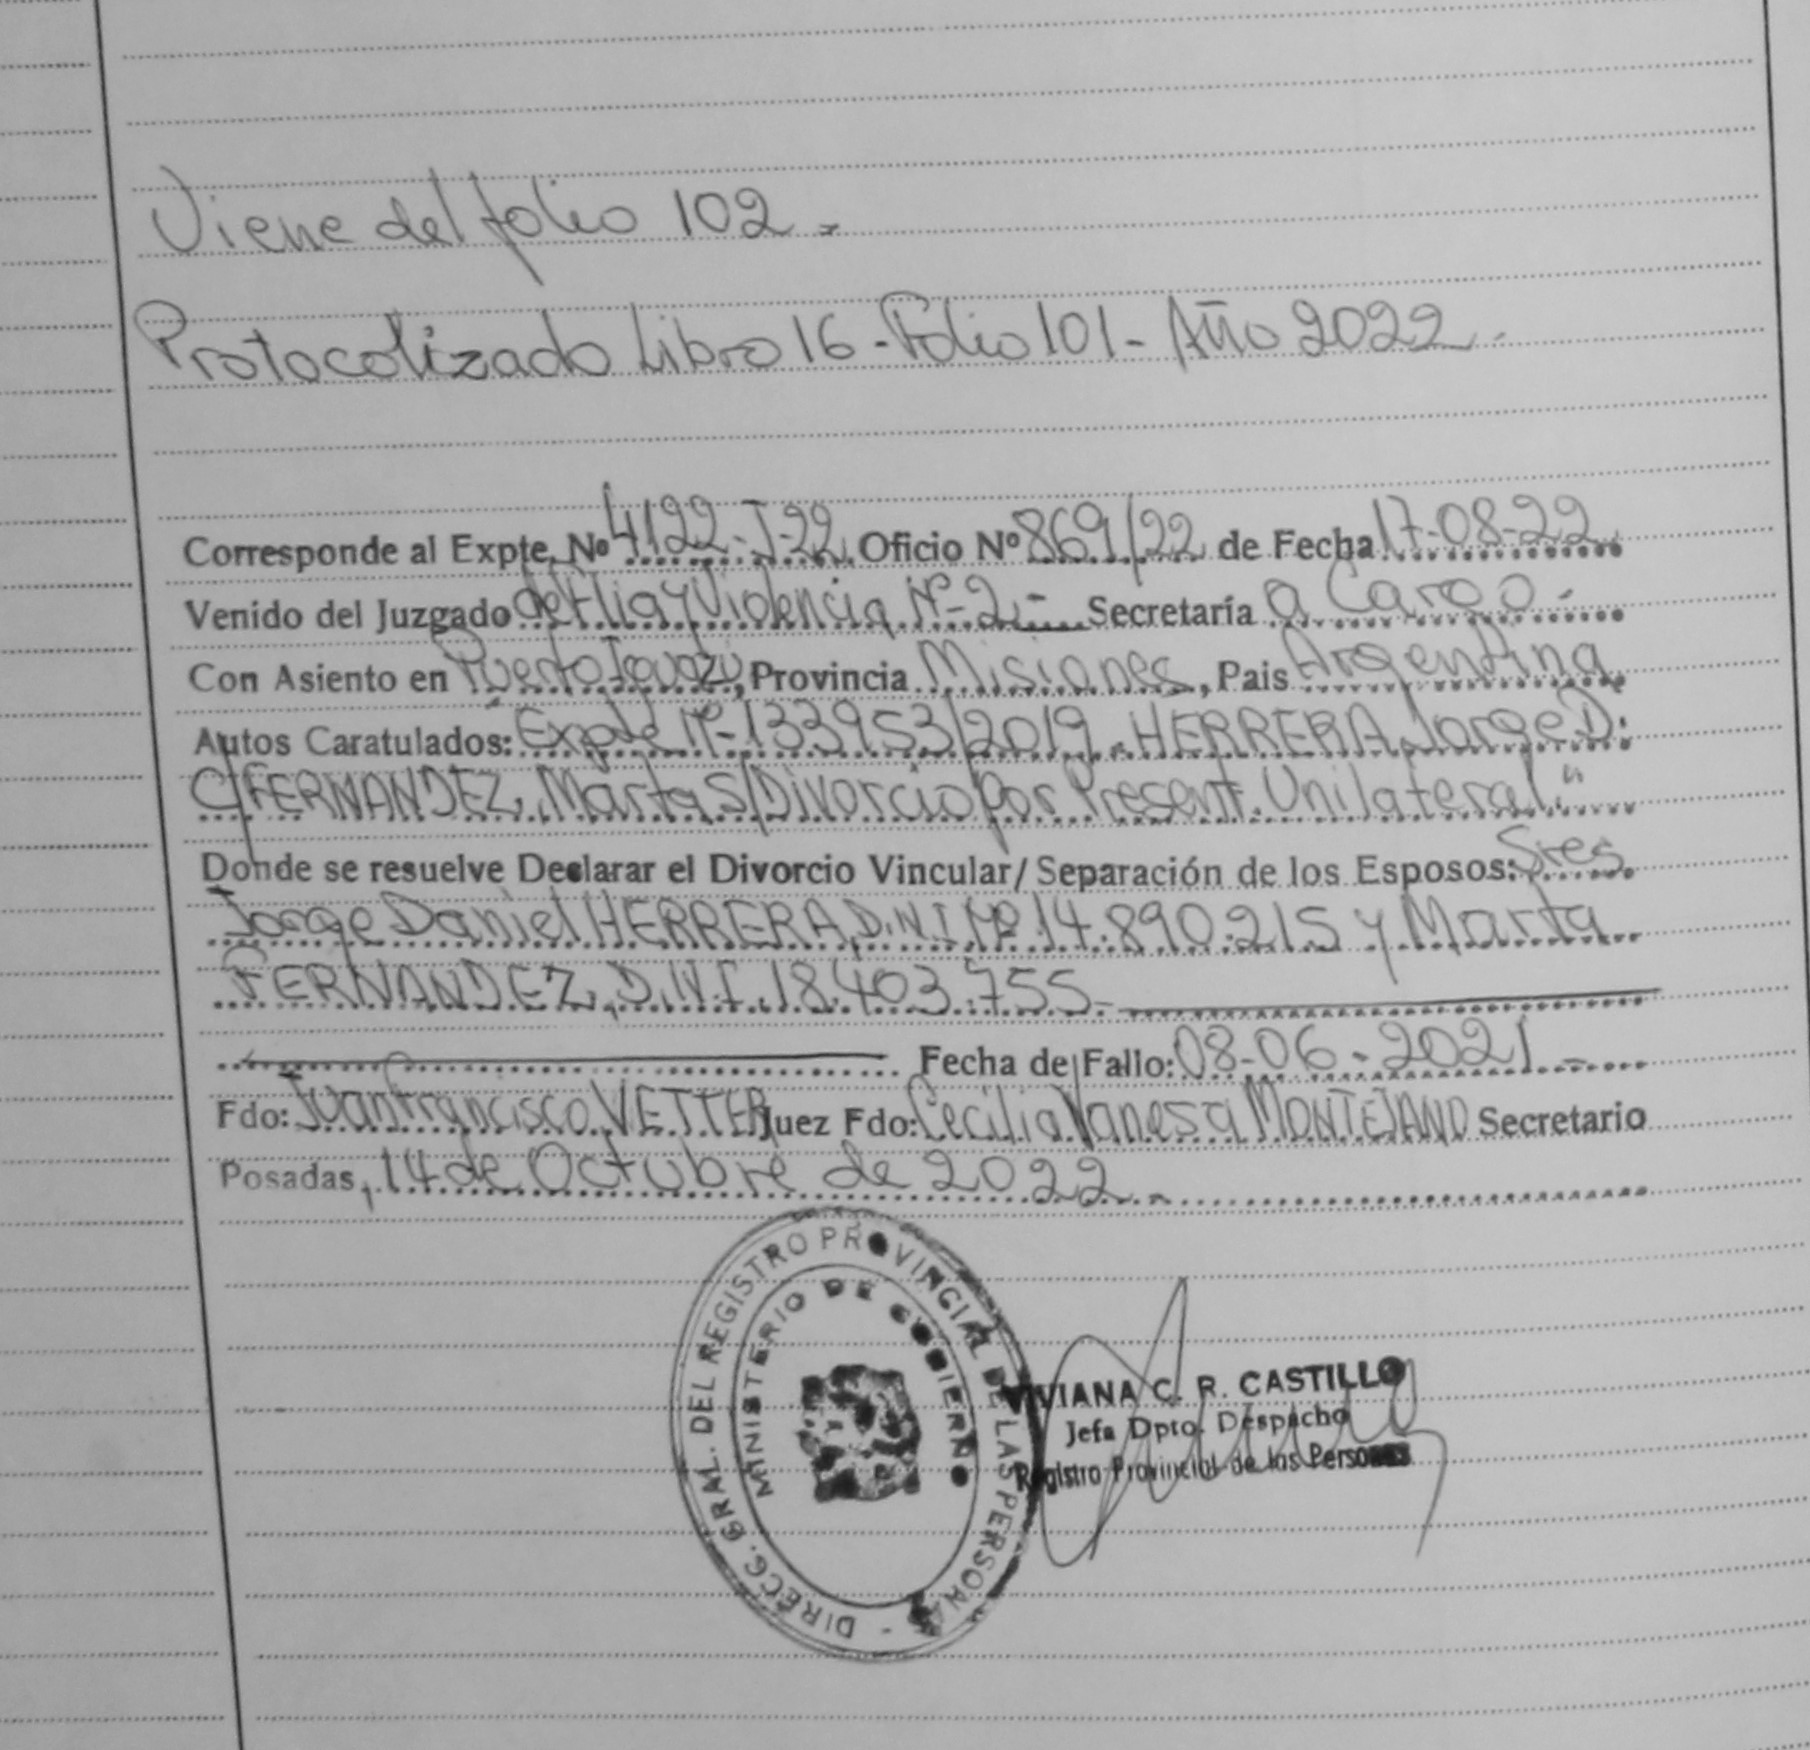 Viene del folio 102.-
Protocolizado Libro 16-Folio 101- Año 2022.-
Corresponde al Expte. Nº 4122-I-22 Oficio Nº 869/22 de Fecha 17-08-22
Venido del Juzgado de Flia y Violencia Nº-2.- Secretaría a Cargo.-
Con Asiento en Puerto Iguazú, Provincia Misiones, Pais Argentina
Autos Caratulados: "Expte Nº-133953/2019. HERRERA Jorge D.
C/FERNANDEZ, Marta S/Divorcio por Present. Unilateral".
Donde se resuelve Declarar el Divorcio Vincular/ Separación de los Esposos: Sres
Jorge Daniel HERRERA, D.N.I Nº 14.890.215 y Marta
FERNANDEZ, D.N.I. 18.403.755.-
Fecha de Fallo: 08-06-2021.-
Fdo: Juan Francisco VETTER Juez Fdo: Cecilia Vanesa MONTEJANO Secretario
Posadas, 14 de Octubre de 2022.-
DIRECC. GRAL. DEL REGISTRO PROVINCIAL DE LAS PERSONAS -
MINISTERIO DE GOBIERNO
VIVIANA C. R. CASTILLO
Jefa Dpto. Despacho
Registro Provincial de las Personas